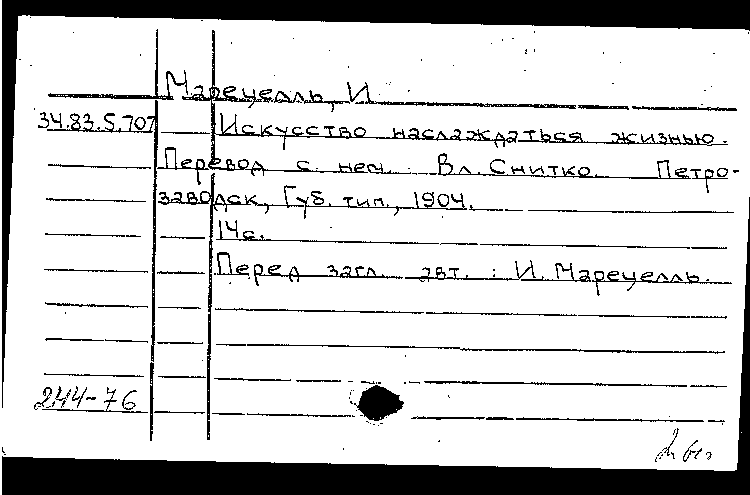 Марецелль, И
34.83.5.707 Искусство наслаждаться жизнью.
Перевод с нем. Вл. Снитко. Петро-
заводск, Губ. тип., 1904.
14с.
Перед загл. авт. : И. Марецелль.
244-76